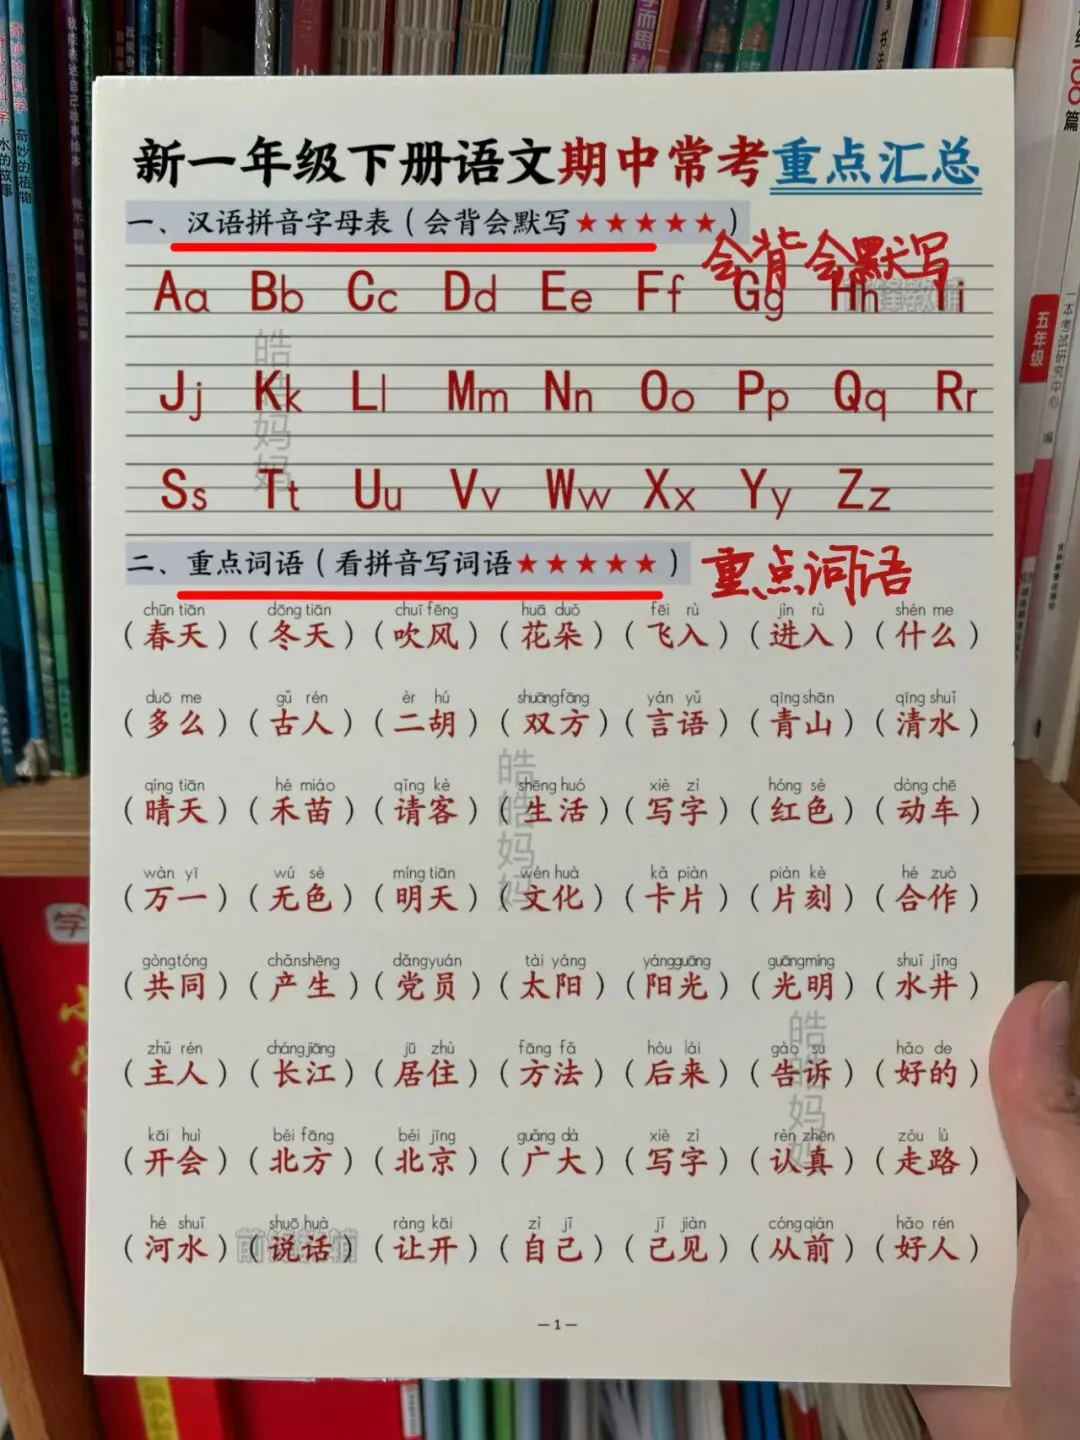 新一年级下册语文期中常考重点汇总
一、汉语拼音字母表（会背会默写★★★★★）
会背会默写
Aa Bb Cc Dd Ee Ff Gg Hh Ii
Jj Kk Ll Mm Nn Oo Pp Qq Rr
Ss Tt Uu Vv Ww Xx Yy Zz
二、重点词语（看拼音写词语★★★★★）
重点词语
chūn tiān dōng tiān chuī fēng huā duǒ fēi rù jìn rù shén me
（春天）（冬天）（吹风）（花朵）（飞入）（进入）（什么）
duō me gǔ rén èr hú shuāng fāng yán yǔ qīng shān qīng shuǐ
（多么）（古人）（二胡）（双方）（言语）（青山）（清水）
qíng tiān hé miáo qǐng kè shēng huó xiě zì hóng sè dòng chē
（晴天）（禾苗）（请客）（生活）（写字）（红色）（动车）
wàn yī wú sè míng tiān wén huà kǎ piàn piàn kè hé zuò
（万一）（无色）（明天）（文化）（卡片）（片刻）（合作）
gòng tóng chǎn shēng dǎng yuán tài yáng yáng guāng guāng míng shuǐ jǐng
（共同）（产生）（党员）（太阳）（阳光）（光明）（水井）
zhǔ rén cháng jiāng jū zhù fāng fǎ hòu lái gào su hǎo de
（主人）（长江）（居住）（方法）（后来）（告诉）（好的）
kāi huì běi fāng běi jīng guǎng dà xiě zì rèn zhēn zǒu lù
（开会）（北方）（北京）（广大）（写字）（认真）（走路）
hé shuǐ shuō huà ràng kāi zì jǐ jǐ jiàn cóng qián hǎo rén
（河水）（说话）（让开）（自己）（己见）（从前）（好人）
— 1 —
皓皓妈妈
皓皓妈妈
皓皓妈妈
前锋教辅
前锋教辅
五年级
一本考试研究中心 编
奇妙的植物
水的故事